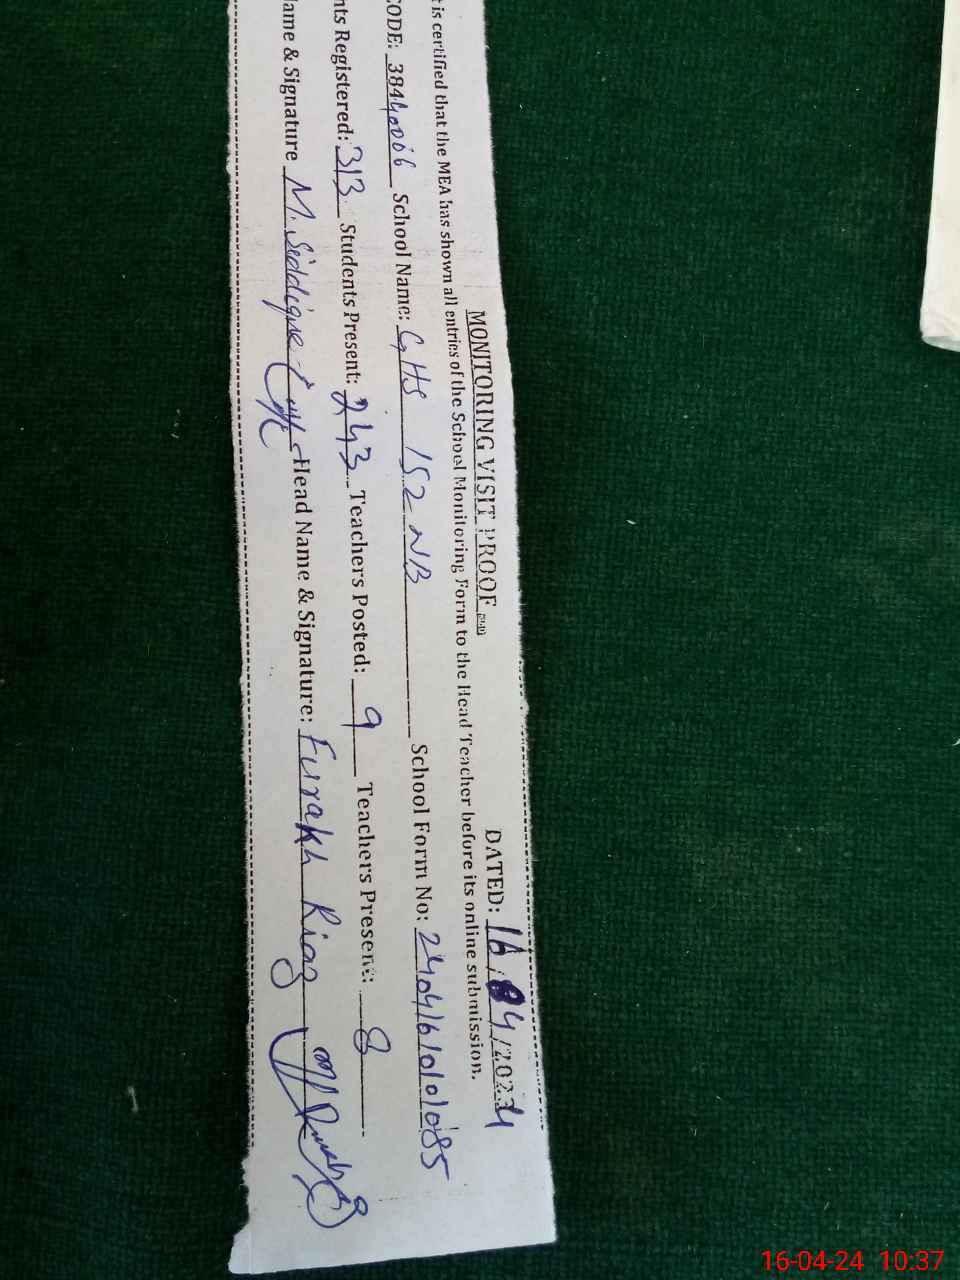 MONITORING VISIT PROOF DATED: 16/4/2024
t is certified that the MEA has shown all entries of the School Monitoring Form to the Head Teacher before its online submission.
CODE: 38440006 School Name: GHS 152 NB School Form No: 2404160101085
nts Registered: 313 Students Present: 243 Teachers Posted: 9 Teachers Present: 8
ame & Signature M. Siddique Head Name & Signature: Furrakh Riaz
16-04-24 10:37